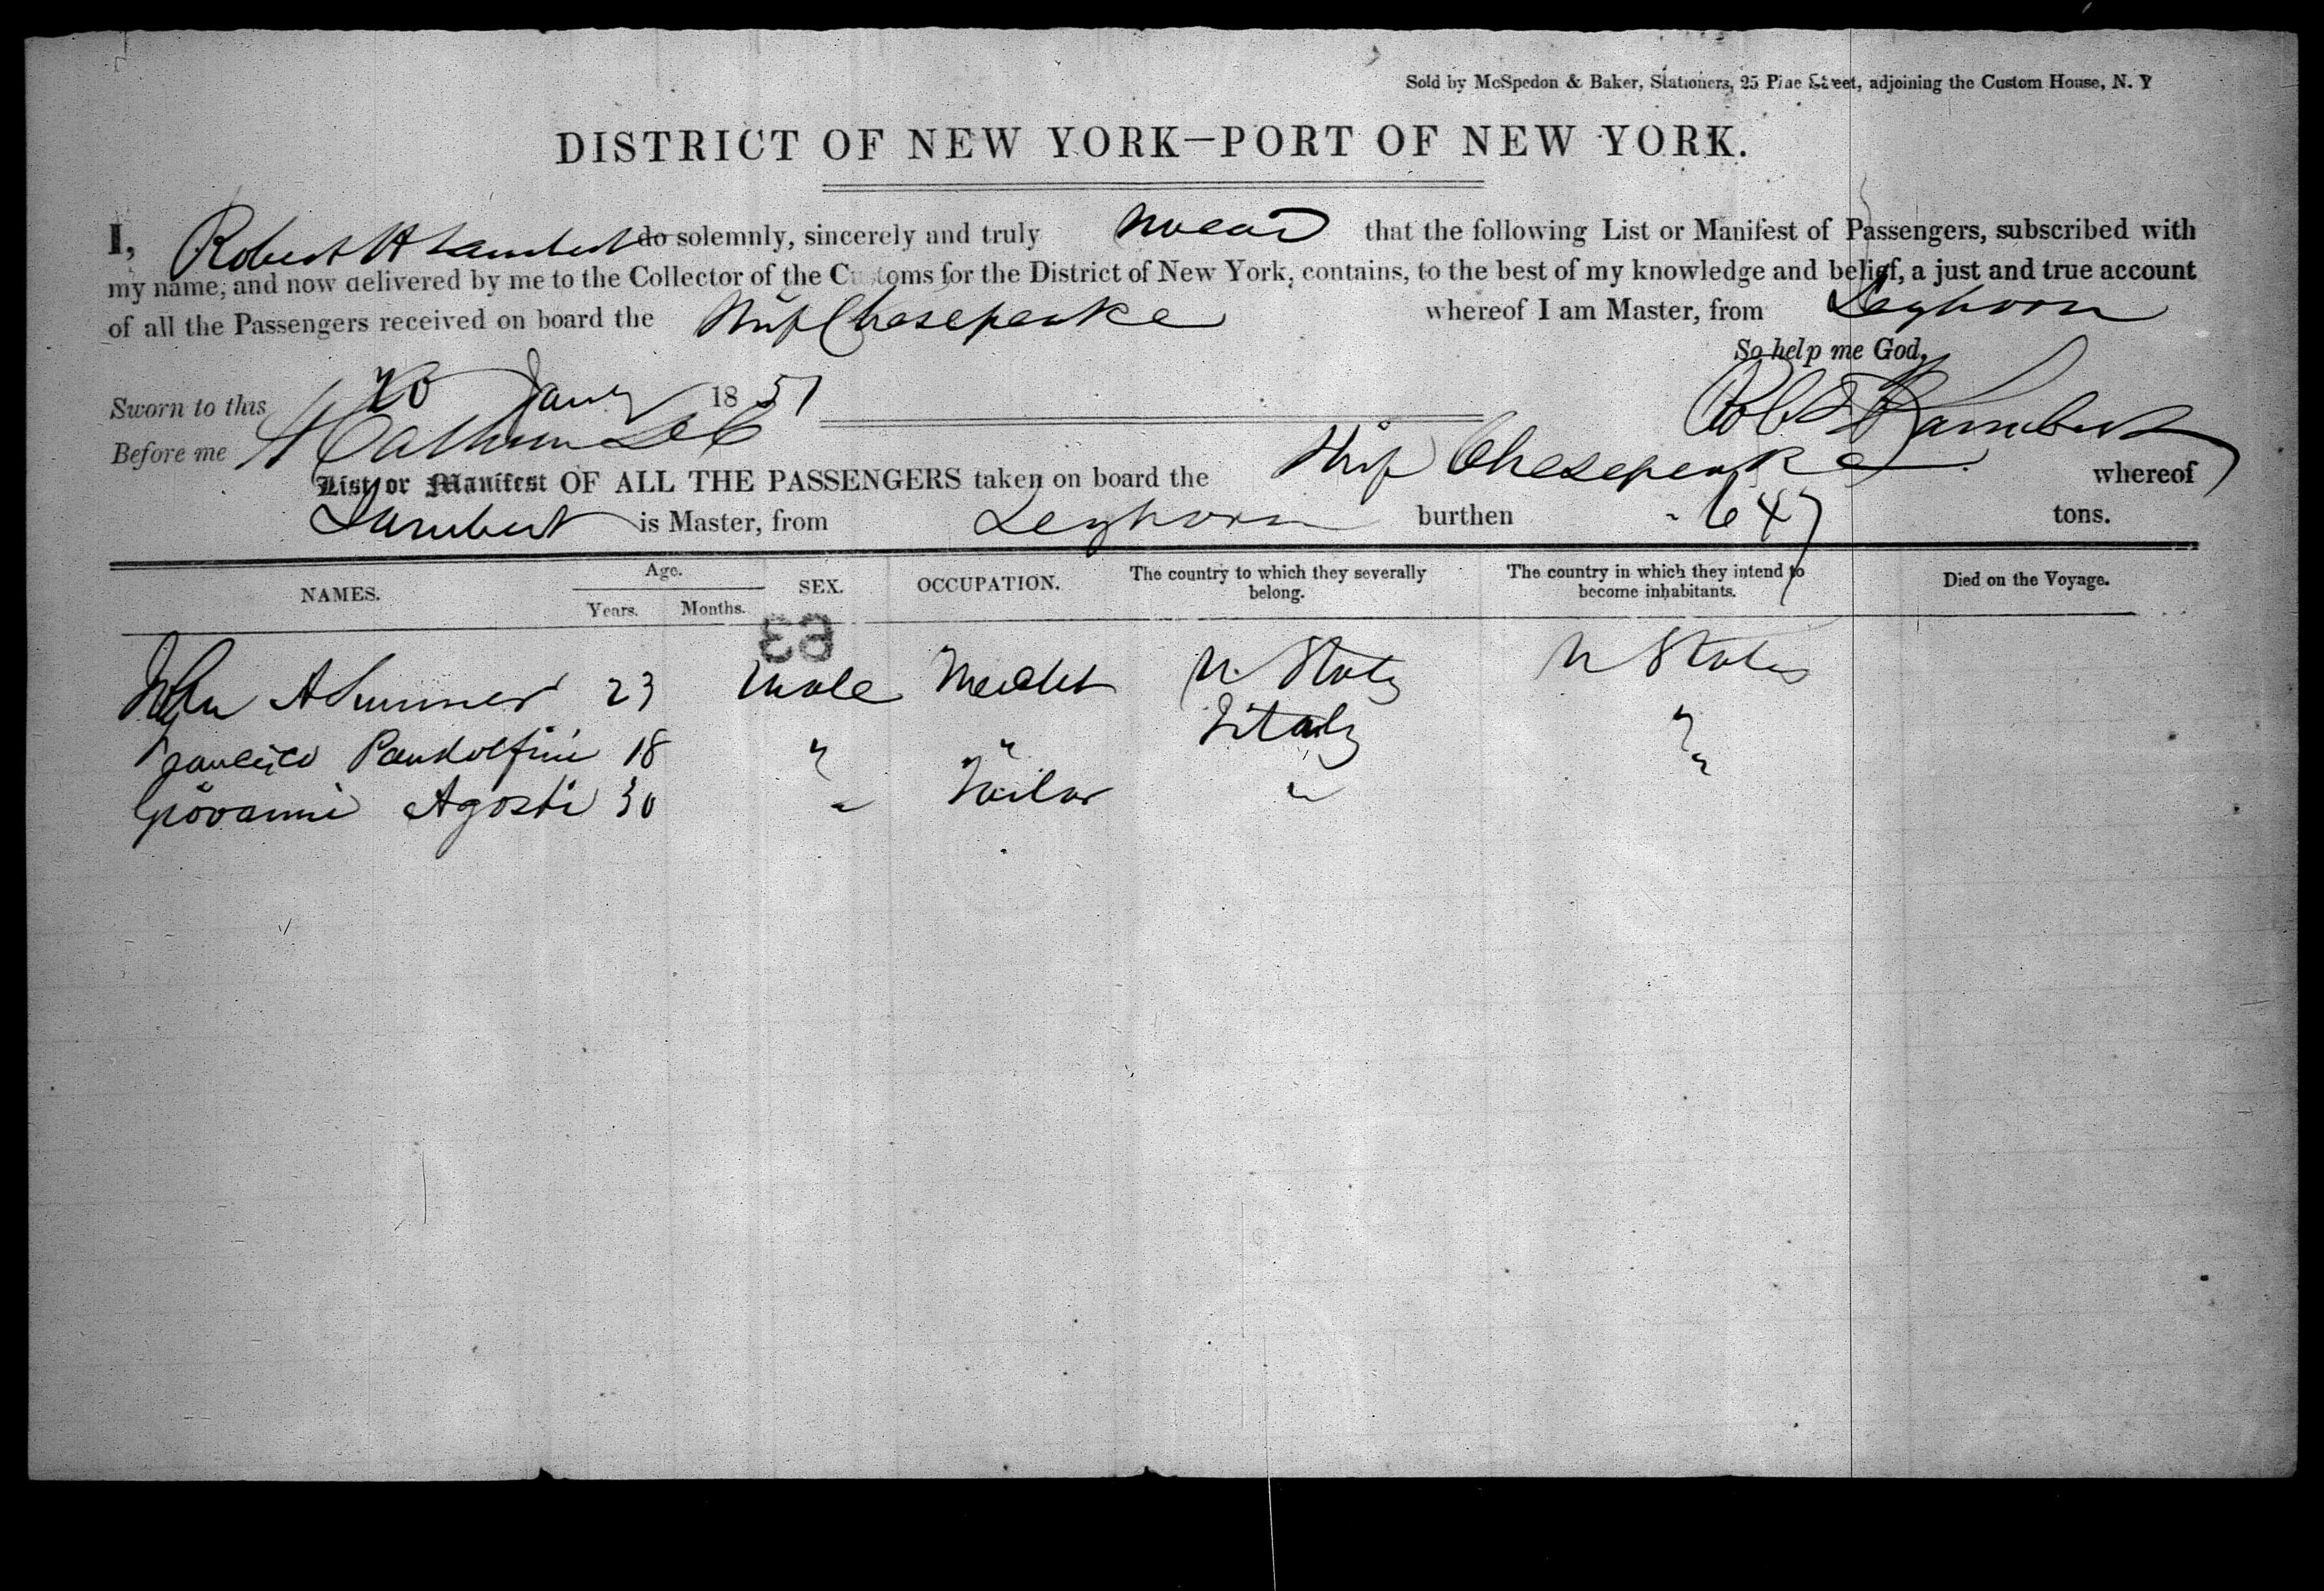 Sold by McSpedon & Baker, Stationers, 25 Pine Street, adjoining the Custom House, N. Y
DISTRICT OF NEW YORK—PORT OF NEW YORK.
I, Robert H Lambert do solemnly, sincerely and truly swear that the following List or Manifest of Passengers, subscribed with
my name, and now delivered by me to the Collector of the Customs for the District of New York, contains, to the best of my knowledge and belief, a just and true account
of all the Passengers received on board the Ship Chesepeake whereof I am Master, from Leghorn
So help me God,
Sworn to this 20 Jany 1851
Robt H Lambert
Before me Calhoun
List or Manifest OF ALL THE PASSENGERS taken on board the Ship Chesepeake whereof
Lambert is Master, from Leghorn burthen 647 tons.
NAMES. Age. Years. Months. SEX. OCCUPATION. The country to which they severally belong. The country in which they intend to become inhabitants. Died on the Voyage.
63
John A Sumner 23 Male Mercht U. States U States
Francisco Pandolfini 18 " " Itialy "
Giovanni Agosti 30 " Tailor " "